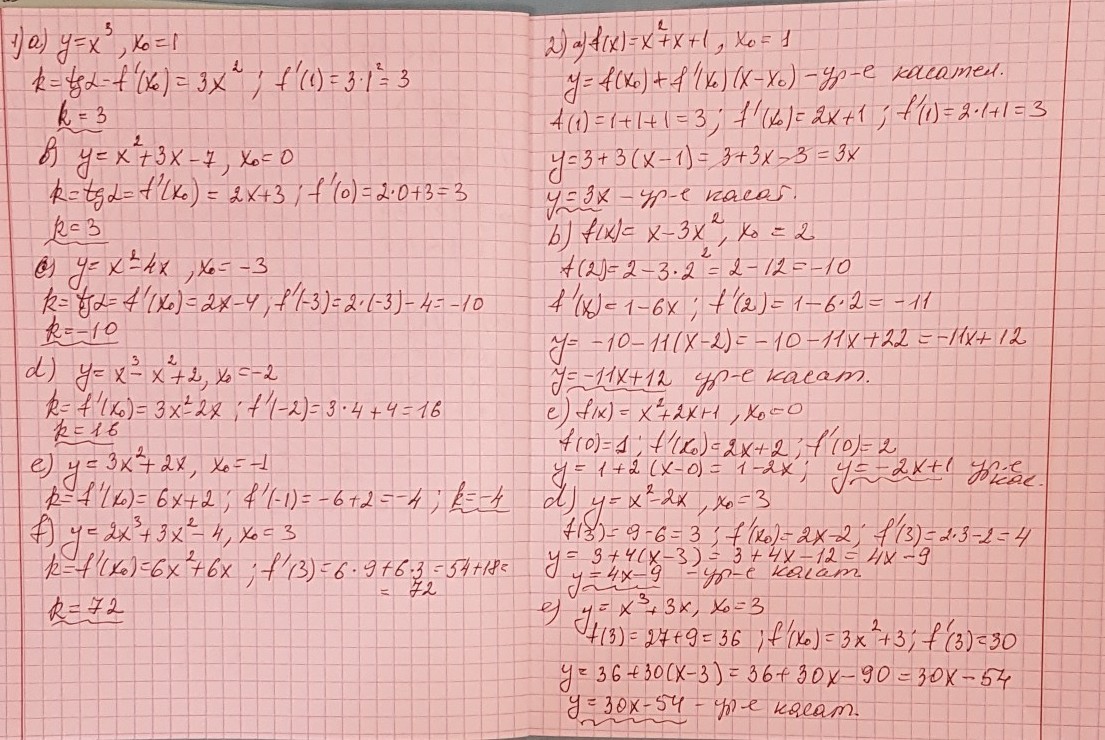 1) a) y=x³, x₀=1
k=tgα=f'(x₀)=3x²; f'(1)=3·1²=3
k=3
b) y=x²+3x-7, x₀=0
k=tgα=f'(x₀)=2x+3; f'(0)=2·0+3=3
k=3
c) y=x²-4x, x₀=-3
k=tgα=f'(x₀)=2x-4; f'(-3)=2·(-3)-4=-10
k=-10
d) y=x³-x²+2, x₀=-2
k=f'(x₀)=3x²-2x; f'(-2)=3·4+4=16
k=16
e) y=3x²+2x, x₀=-1
k=f'(x₀)=6x+2; f'(-1)=-6+2=-4; k=-4
f) y=2x³+3x²-4, x₀=3
k=f'(x₀)=6x²+6x; f'(3)=6·9+6·3=54+18=
= 72
k=72
2) a) f(x)=x²+x+1, x₀=1
y=f(x₀)+f'(x₀)(x-x₀) - ур-е касател.
f(1)=1+1+1=3; f'(x₀)=2x+1; f'(1)=2·1+1=3
y=3+3(x-1)=3+3x-3=3x
y=3x - ур-е касат.
b) f(x)=x-3x², x₀=2
f(2)=2-3·2²=2-12=-10
f'(x₀)=1-6x; f'(2)=1-6·2=-11
y=-10-11(x-2)=-10-11x+22=-11x+12
y=-11x+12 ур-е касат.
c) f(x)=x²+2x+1, x₀=0
f(0)=1; f'(x₀)=2x+2; f'(0)=2
y=1+2(x-0)=1-2x; y=-2x+1 ур-е
кас.
d) y=x²-2x, x₀=3
f(3)=9-6=3; f'(x₀)=2x-2; f'(3)=2·3-2=4
y=3+4(x-3)=3+4x-12=4x-9
y=4x-9 - ур-е касат.
e) y=x³+3x, x₀=3
f(3)=27+9=36; f'(x₀)=3x²+3; f'(3)=30
y=36+30(x-3)=36+30x-90=30x-54
y=30x-54 - ур-е касат.